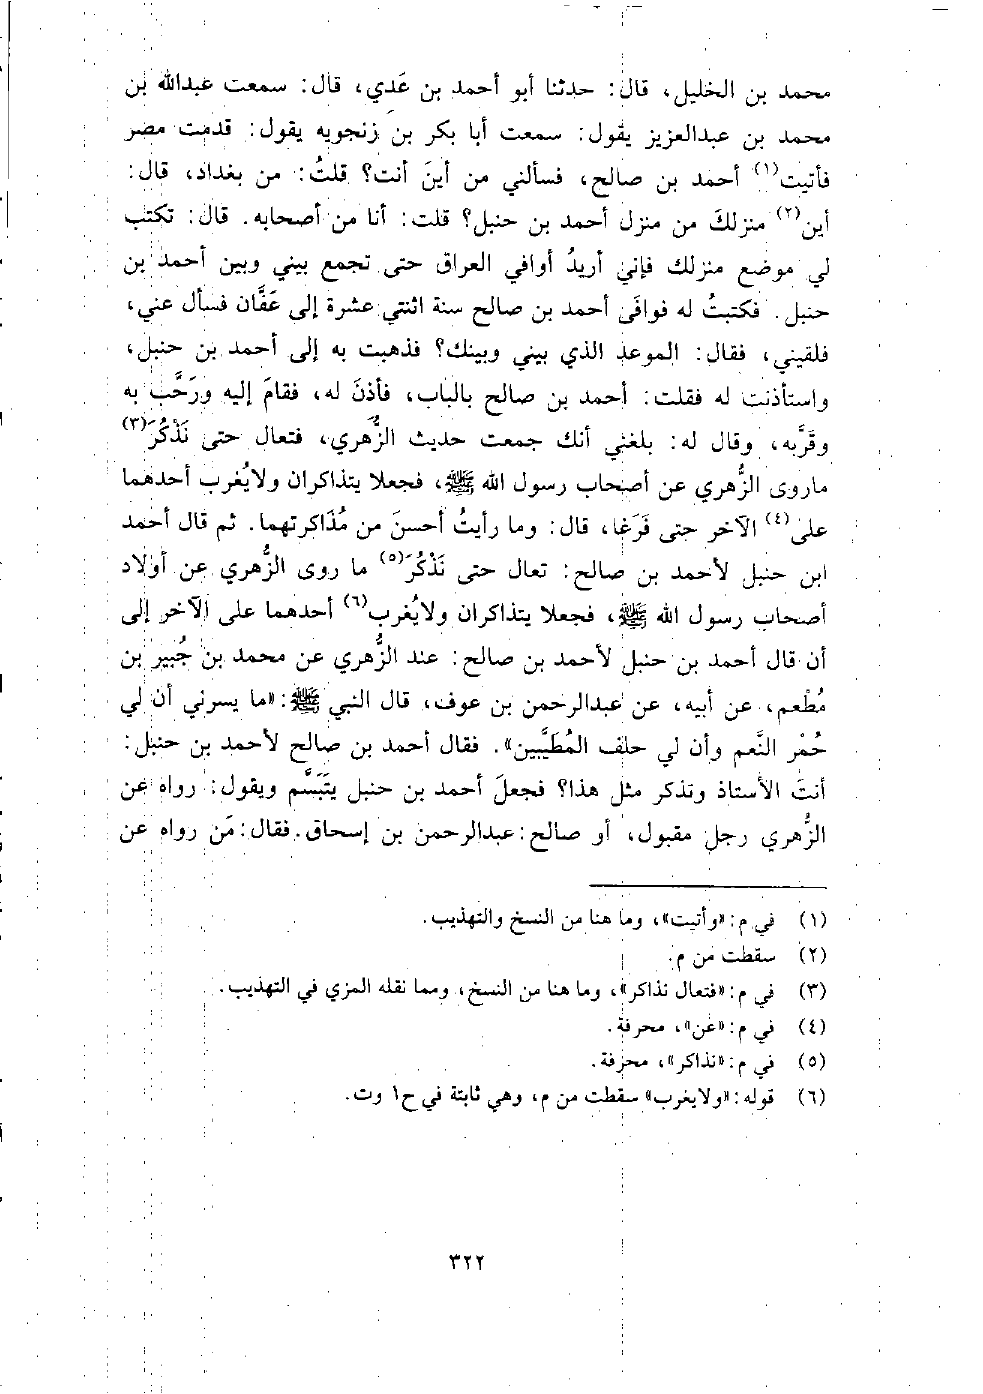 محمد بن الخليل، قال: حدثنا أبو أحمد بن عَدي، قال: سمعت عبدالله بن
محمد بن عبدالعزيز يقول: سمعت أبا بكر بن زنجويه يقول: قدمت مصر
فأتيت(١) أحمد بن صالح، فسألني من أينَ أنت؟ قلتُ: من بغداد، قال:
أين(٢) منزلكَ من منزل أحمد بن حنبل؟ قلت: أنا من أصحابه. قال: تكتب
لي موضع منزلك فإني أريدُ أوافي العراق حتى تجمع بيني وبين أحمد بن
حنبل. فكتبتُ له فوافَى أحمد بن صالح سنة اثنتي عشرة إلى عَفَّان فسأل عني،
فلقيني، فقال: الموعد الذي بيني وبينك؟ فذهبت به إلى أحمد بن حنبل،
واستأذنت له فقلت: أحمد بن صالح بالباب، فأذنَ له، فقامَ إليه ورَحَّب به
وقَرَّبه، وقال له: بلغني أنك جمعت حديث الزُّهري، فتعال حتى نَذْكُرَ(٣)
ماروى الزُّهري عن أصحاب رسول الله ﷺ، فجعلا يتذاكران ولايُغرب أحدهما
على(٤) الآخر حتى فَرَغا، قال: وما رأيتُ أحسنَ من مُذَاكرتهما. ثم قال أحمد
ابن حنبل لأحمد بن صالح: تعال حتى نَذْكُرَ(٥) ما روى الزُّهري عن أولاد
أصحاب رسول الله ﷺ، فجعلا يتذاكران ولايُغرب(٦) أحدهما على الآخر إلى
أن قال أحمد بن حنبل لأحمد بن صالح: عند الزُّهري عن محمد بن جُبير بن
مُطْعم، عن أبيه، عن عبدالرحمن بن عوف، قال النبي ﷺ: «ما يسرني أن لي
حُمْر النَّعم وأن لي حلف المُطَيَّبين». فقال أحمد بن صالح لأحمد بن حنبل:
أنتَ الأستاذ وتذكر مثل هذا؟ فجعلَ أحمد بن حنبل يتَبَسَّم ويقول: رواه عن
الزُّهري رجل مقبول، أو صالح: عبدالرحمن بن إسحاق. فقال: مَن رواه عن
(١) في م: «وأتيت»، وما هنا من النسخ والتهذيب.
(٢) سقطت من م.
(٣) في م: «فتعال نذاكر»، وما هنا من النسخ، ومما نقله المزي في التهذيب.
(٤) في م: «عن»، محرفة.
(٥) في م: «نذاكر»، محرفة.
(٦) قوله: «ولايغرب» سقطت من م، وهي ثابتة في ح١ وت.
٣٢٢